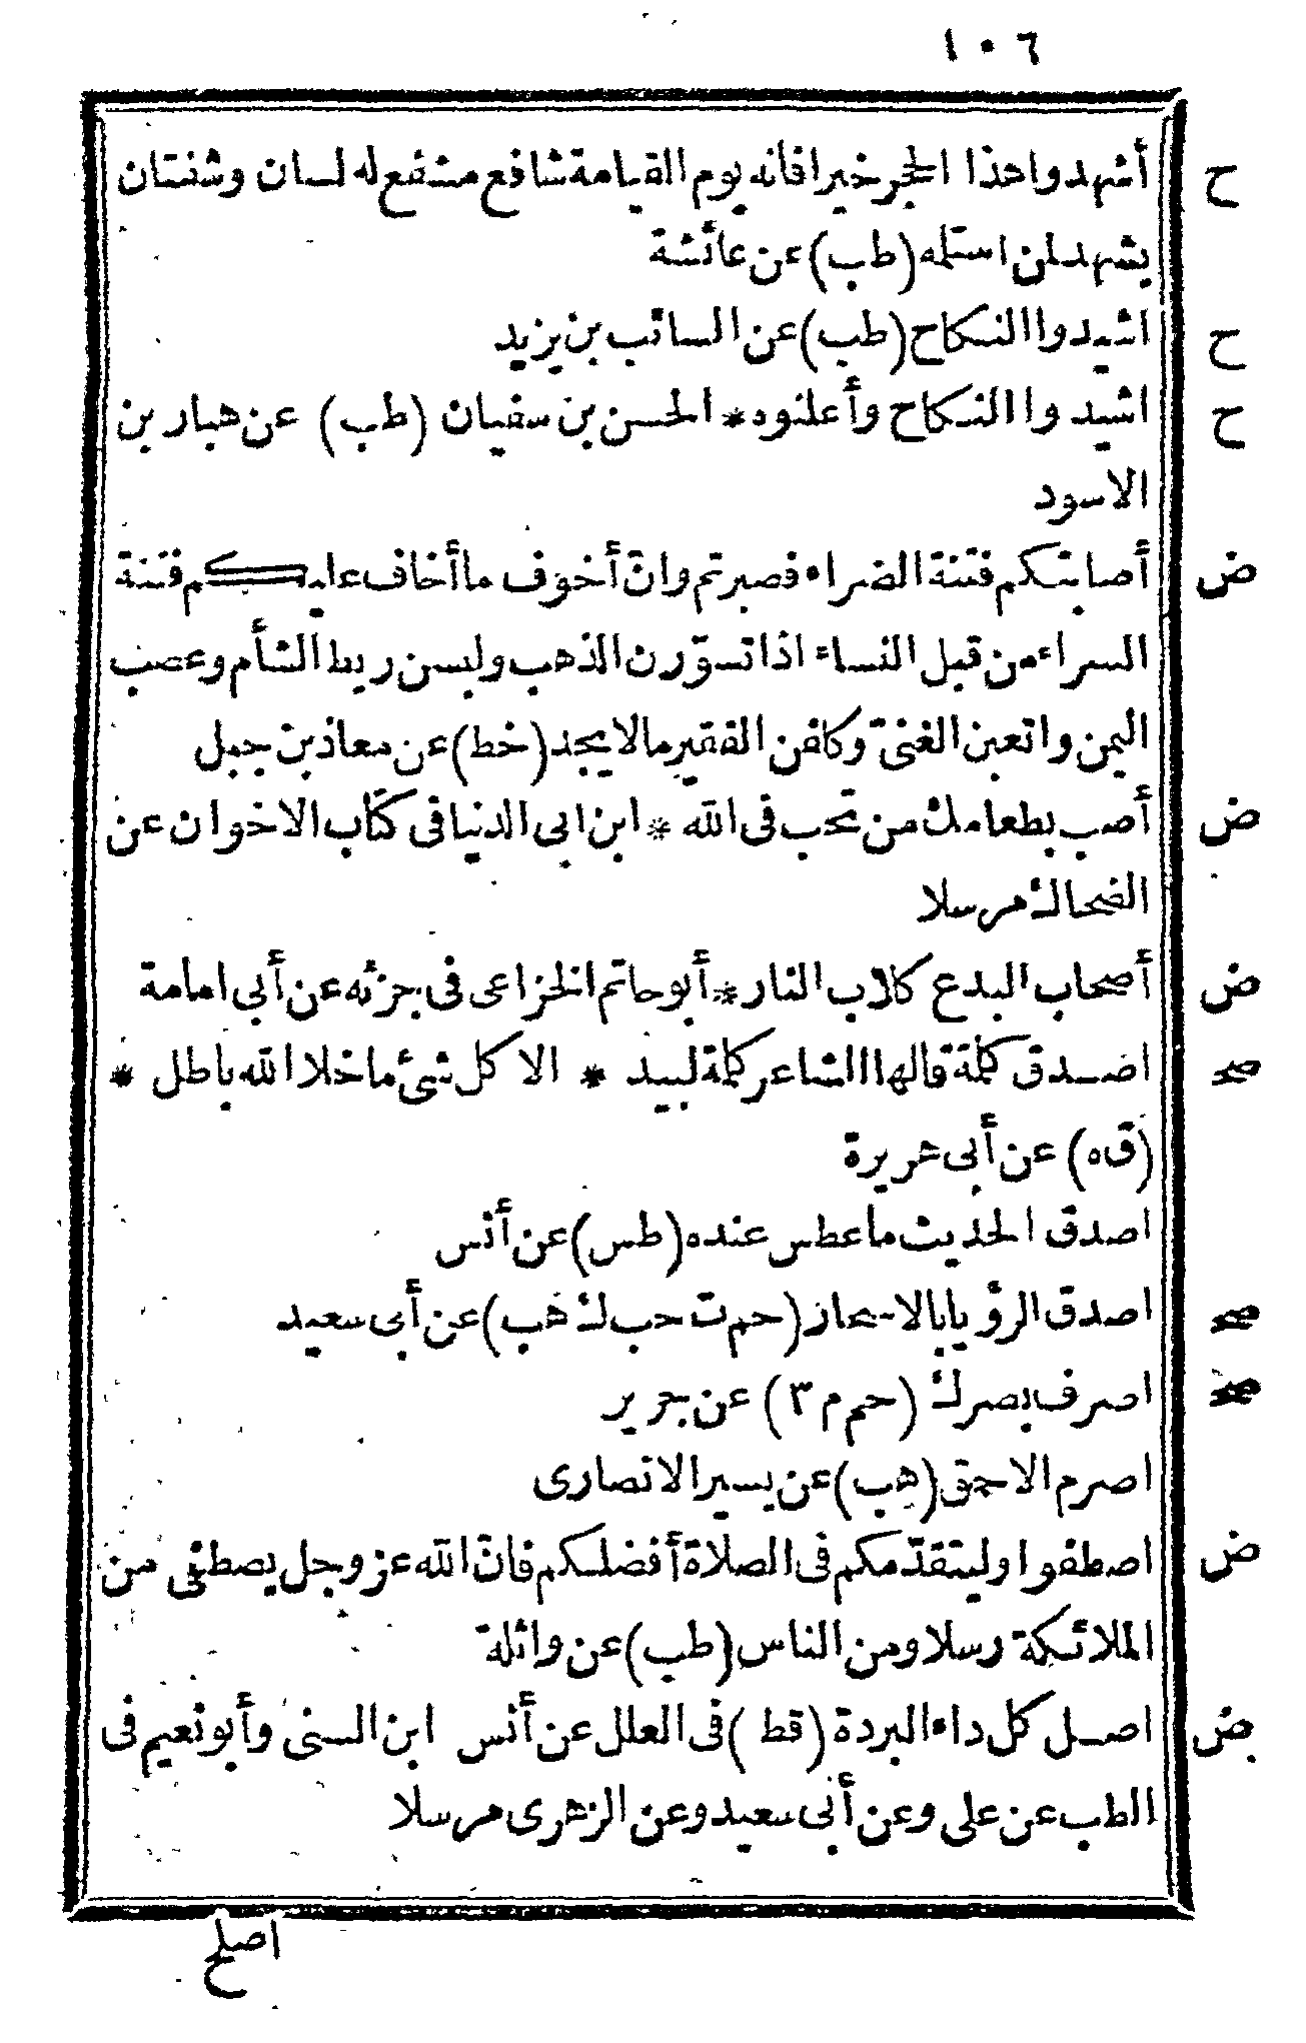 ١٠٦
ح أشهدوا هذا الحجر خيرا فانه يوم القيامة شافع مشفع له لسان وشفتان
يشهد لمن استلمه (طب) عن عائشة
ح اشيدوا النكاح (طب) عن السائب بن يزيد
ح اشيدوا النكاح وأعلنوه * الحسن بن سفيان (طب) عن هبار بن
الاسود
ض أصابتكم فتنة الضراء فصبرتم وانّ أخوف ما أخاف عليكم فتنة
السراء من قبل النساء اذا تسوّرن الذهب ولبسن ريط الشأم وعصب
اليمن واتعبن الغنىّ وكلفن الفقير مالا يجد (خط) عن معاذ بن جبل
ض أصب بطعامك من تحب فى الله * ابن ابى الدنيا فى كتاب الاخوان عن
الضحاك مرسلا
ض أصحاب البدع كلاب النار * أبو حاتم الخزاعى فى جزئه عن أبى امامة
صح اصدق كلمة قالها الشاعر كلمة لبيد * الا كل شئ ما خلا الله باطل *
(ق ه) عن أبى هريرة
اصدق الحديث ما عطس عنده (طس) عن أنس
صح اصدق الرؤيا بالاسحار (حم ت حب ك هب) عن أبى سعيد
صح اصرف بصرك (حم م ٣) عن جرير
اصرم الاحمق (هب) عن يسير الانصارى
ض اصطفوا وليتقدّمكم فى الصلاة أفضلكم فانّ الله عز وجل يصطفى من
الملائكة رسلا ومن الناس (طب) عن واثلة
ض اصل كل داء البردة (قط) فى العلل عن أنس ابن السنى وأبو نعيم فى
الطب عن على وعن أبى سعيد وعن الزهرى مرسلا
اصلح